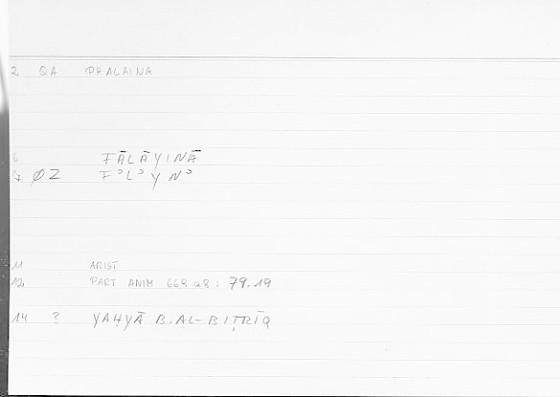 2 QA PHALAINA
6 FĀLĀYINĀ
7 ØZ FᵓLᵓYNᵓ
11 ARIST
12 PART ANIM 669 a8 : 79.19
14 ? YAḤYĀ B. AL-BIṬRĪQ